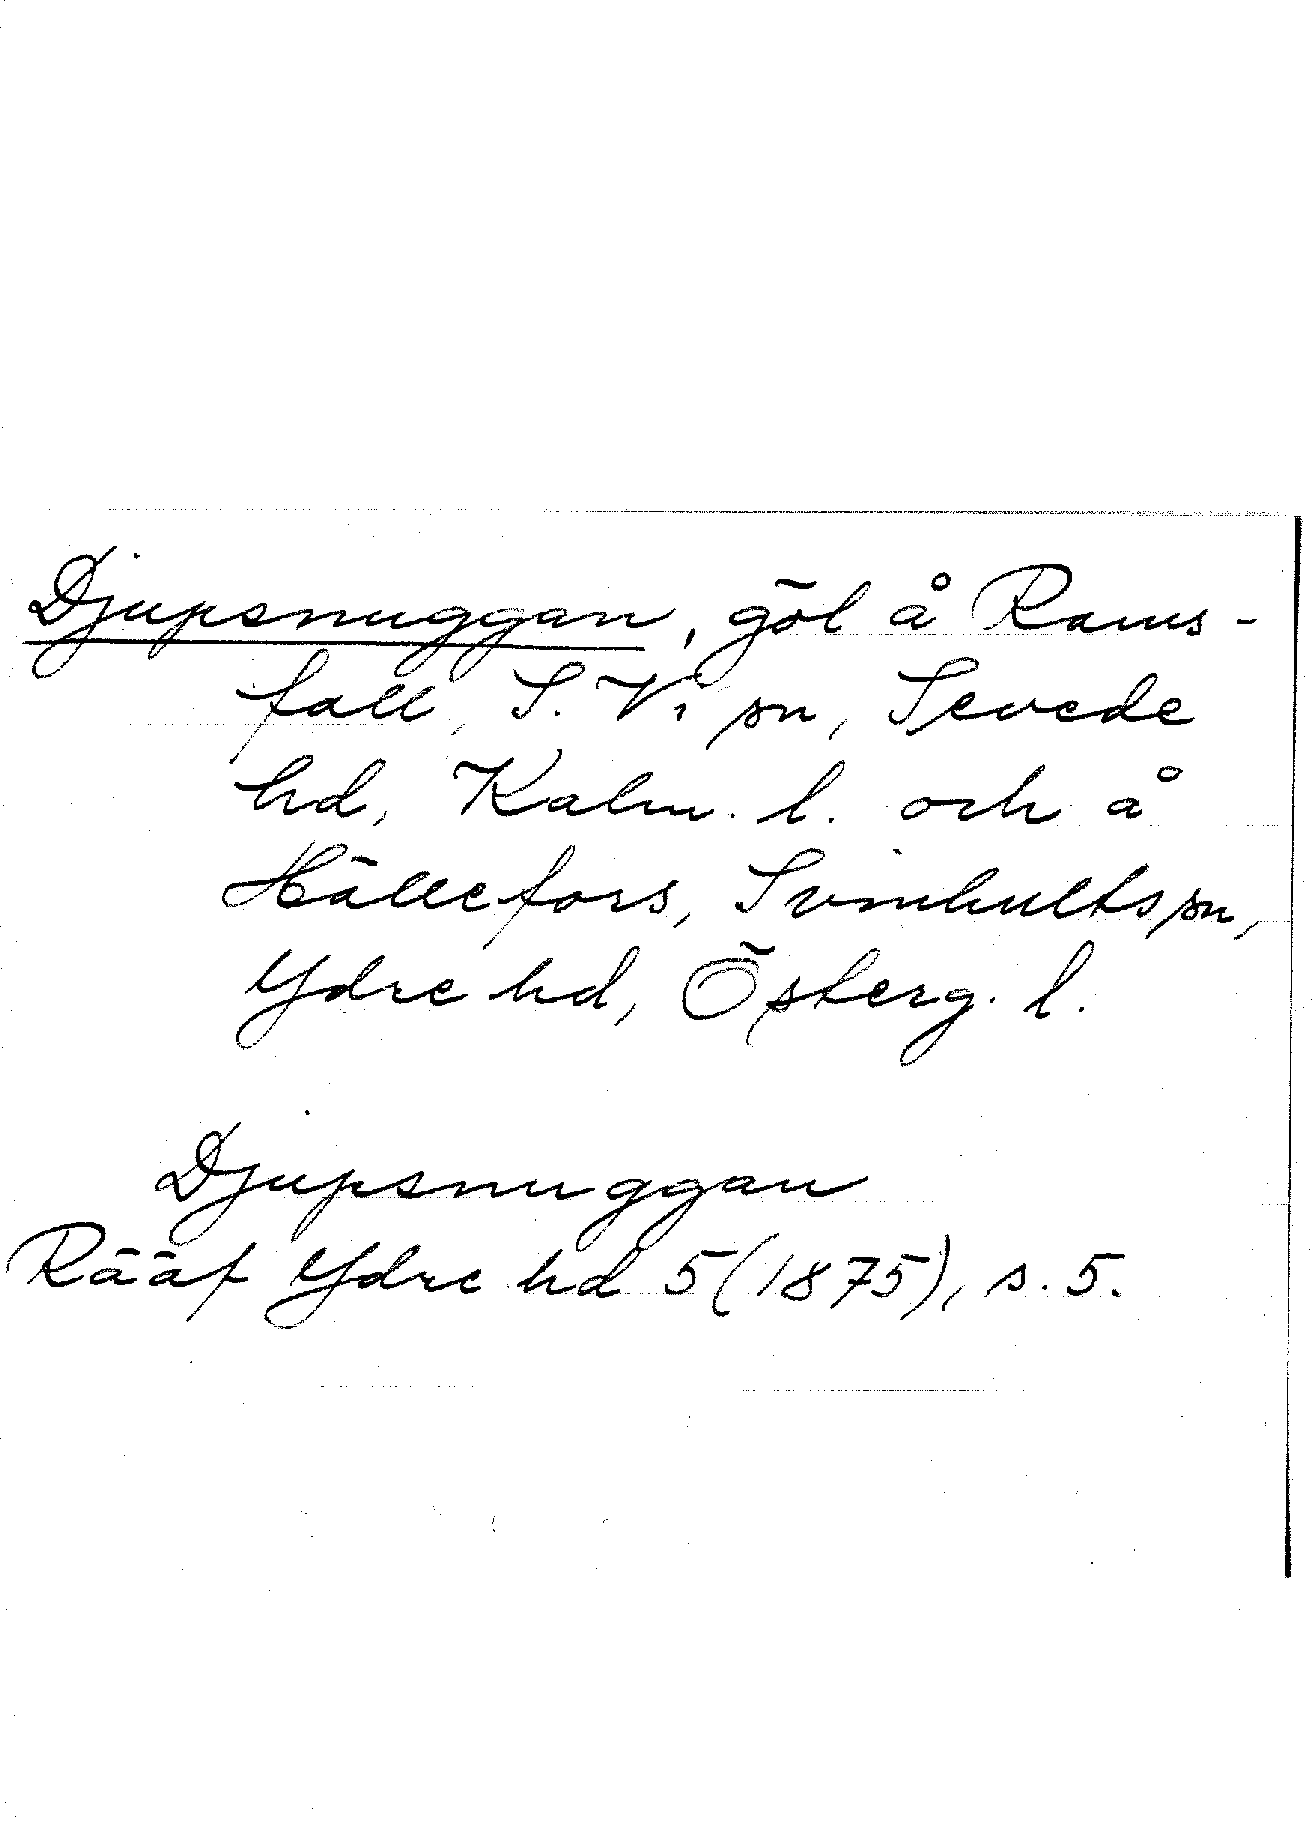 Djupsnuggan, göl å Rams-
fall, S. Vi sn, Sevede
hd, Kalm. l. och å
Hällefors, Svinhults sn,
Ydre hd, Österg. l.
Djupsnuggan
Rääf Ydre hd 5 (1875), s. 5.